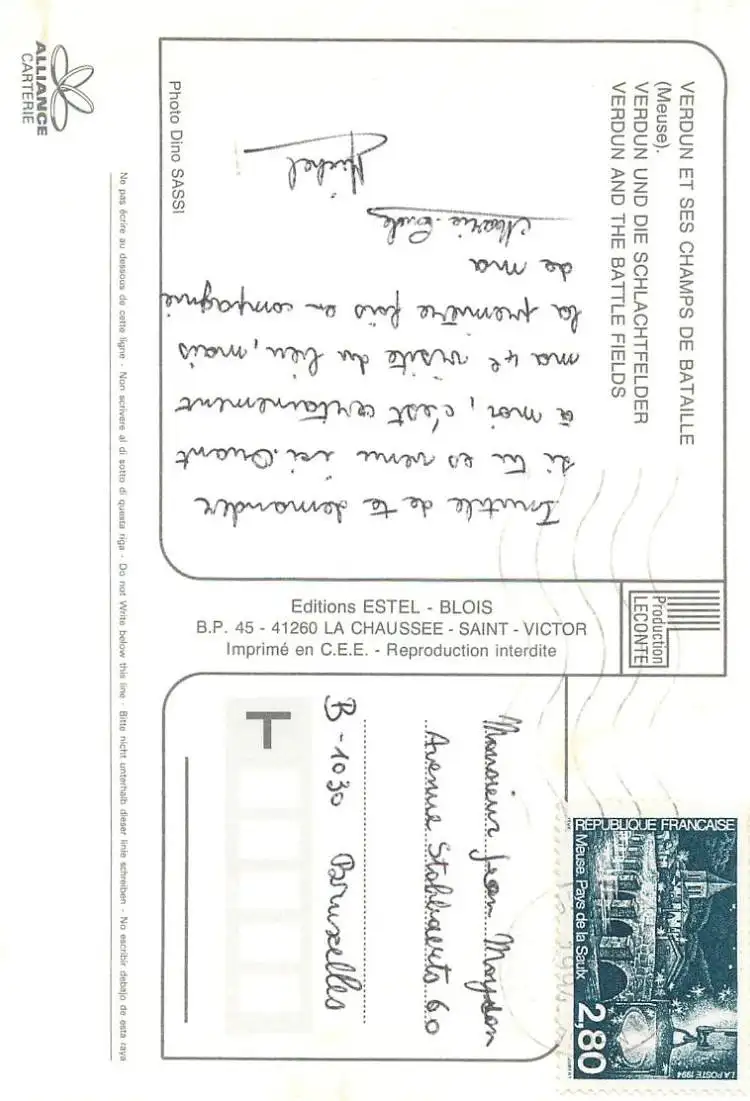 VERDUN ET SES CHAMPS DE BATAILLE
(Meuse).
VERDUN UND DIE SCHLACHTFELDER
VERDUN AND THE BATTLE FIELDS
Inutile de te demander
si tu es venu ici. Quant
à moi, c'est certainement
ma 4e visite du lieu, mais
la première fois en compagnie
de ma
Marie-Paule
Michel
Photo Dino SASSI
ALLIANCE
CARTERIE
Production
LECONTE
Editions ESTEL - BLOIS
B.P. 45 - 41260 LA CHAUSSEE - SAINT - VICTOR
Imprimé en C.E.E. - Reproduction interdite
RÉPUBLIQUE FRANÇAISE
Meuse. Pays de la Saulx
2,80
LA POSTE 1994
Monsieur Jean
Avenue 60
B-1030 Bruxelles
T
Ne pas écrire au dessous de cette ligne - Non scrivere al di sotto di questa riga - Do not Write below this line - Bitte nicht unterhalb dieser linie schreiben - No escribir debajo de esta raya